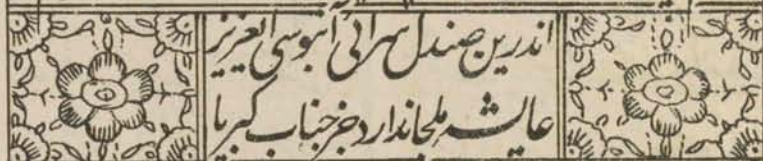 اندرین صندل سرائی آبنوسی العزیز
عایشه ملجا ندارد جز جناب کبریا